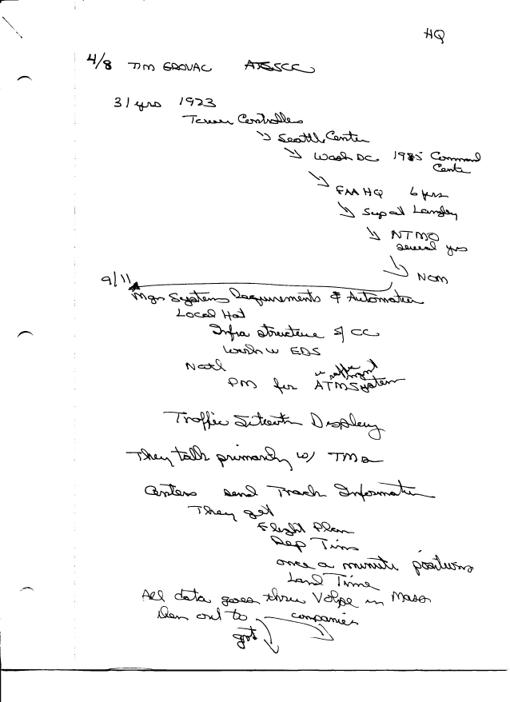 HQ
4/8 TIM GROVAC ATSSCC
31 yrs 1973
Tower Controller
Seattle Center
Wash DC 1985 Command
Center
FAA HQ 6 yrs
Sup at Langley
NTMO
several yrs
NOM
9/11
Mgr Systems Requirements & Automation
Local Hat
Infra structure SCC
Work w EDS
Natl
PM for ATM System
Traffic Situation Display
They talk primarily w/ TMO
Centers send Track Information
They get
Flight Plan
Dep Time
once a minute positions
Land Time
All data goes thru Volpe in Mass
then out to companies
govt